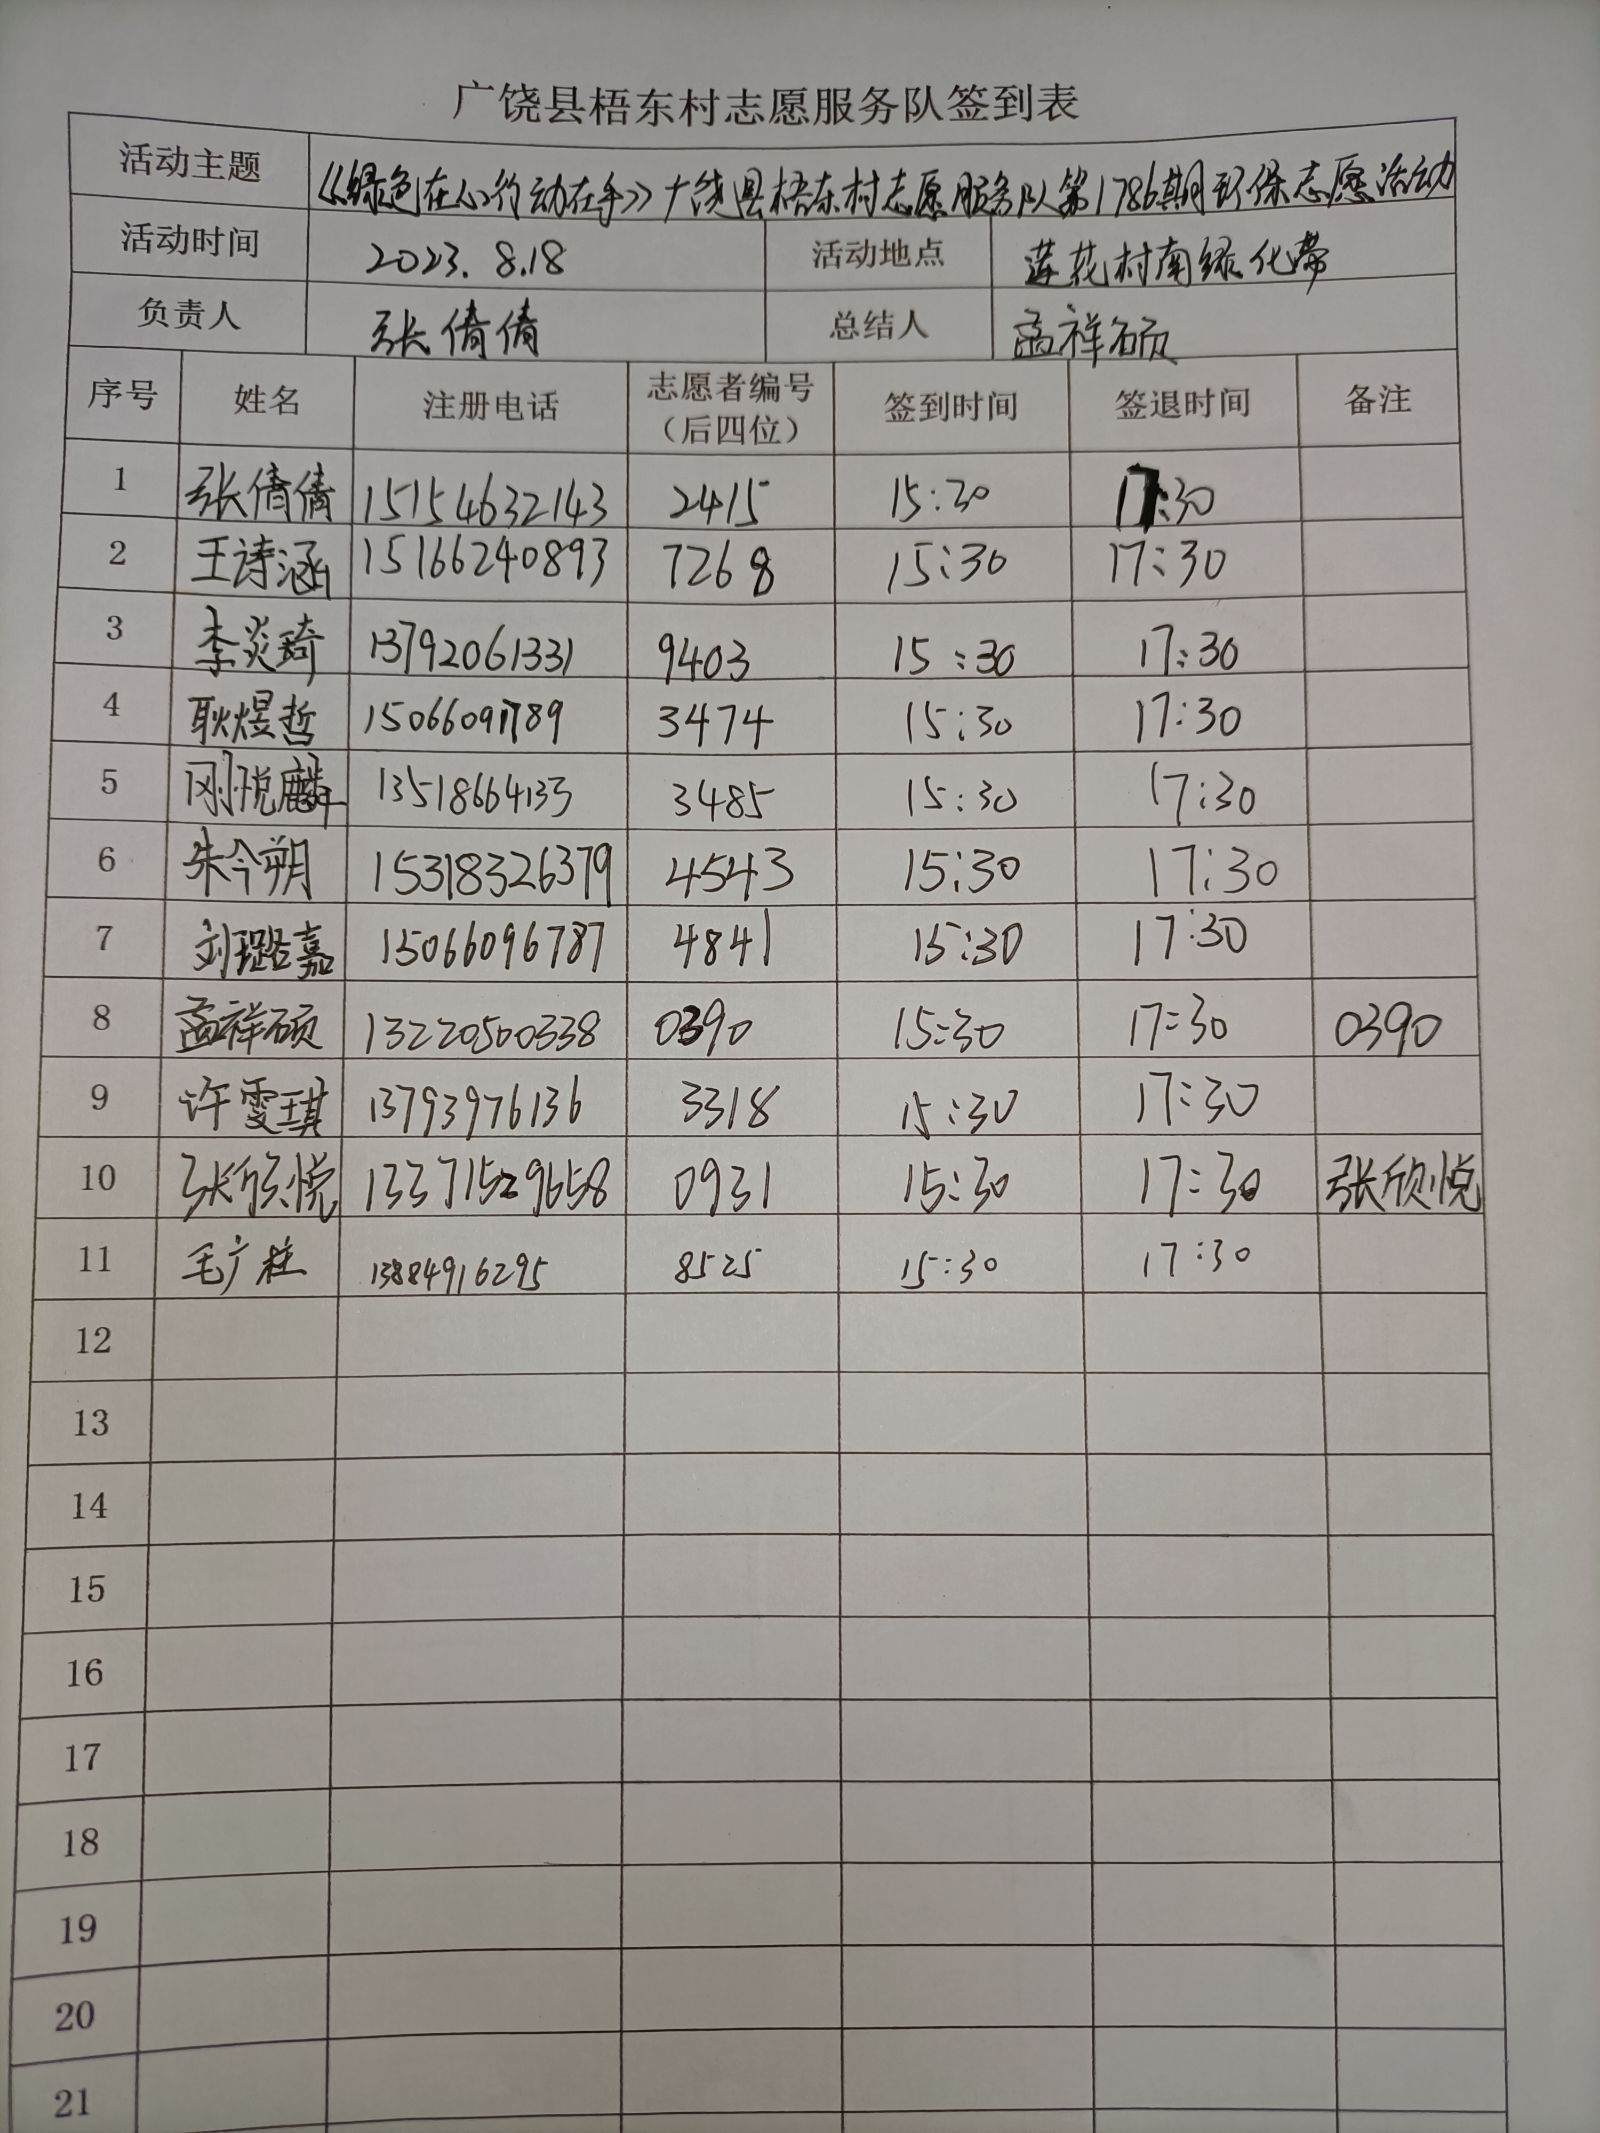 广饶县梧东村志愿服务队签到表
活动主题 《绿色在心行动在手》广饶县梧东村志愿服务队第1786期环保志愿活动
活动时间 2023.8.18 活动地点 莲花村南绿化带
负责人 张倩倩 总结人 孟祥硕
序号 姓名 注册电话 志愿者编号（后四位） 签到时间 签退时间 备注
1 张倩倩 15154632143 2415 15:30 17:30
2 王诗涵 15166240893 7268 15:30 17:30
3 李炎琦 13792061331 9403 15:30 17:30
4 耿煜哲 15066091789 3474 15:30 17:30
5 刚悦麟 13518664133 3485 15:30 17:30
6 朱今朔 15318326379 4543 15:30 17:30
7 刘璐嘉 15066096787 4841 15:30 17:30
8 孟祥硕 13220500338 0390 15:30 17:30 0390
9 许雯琪 13793976136 3318 15:30 17:30
10 张欣悦 13371529658 0931 15:30 17:30 张欣悦
11 毛广柱 13884916295 8525 15:30 17:30
12
13
14
15
16
17
18
19
20
21